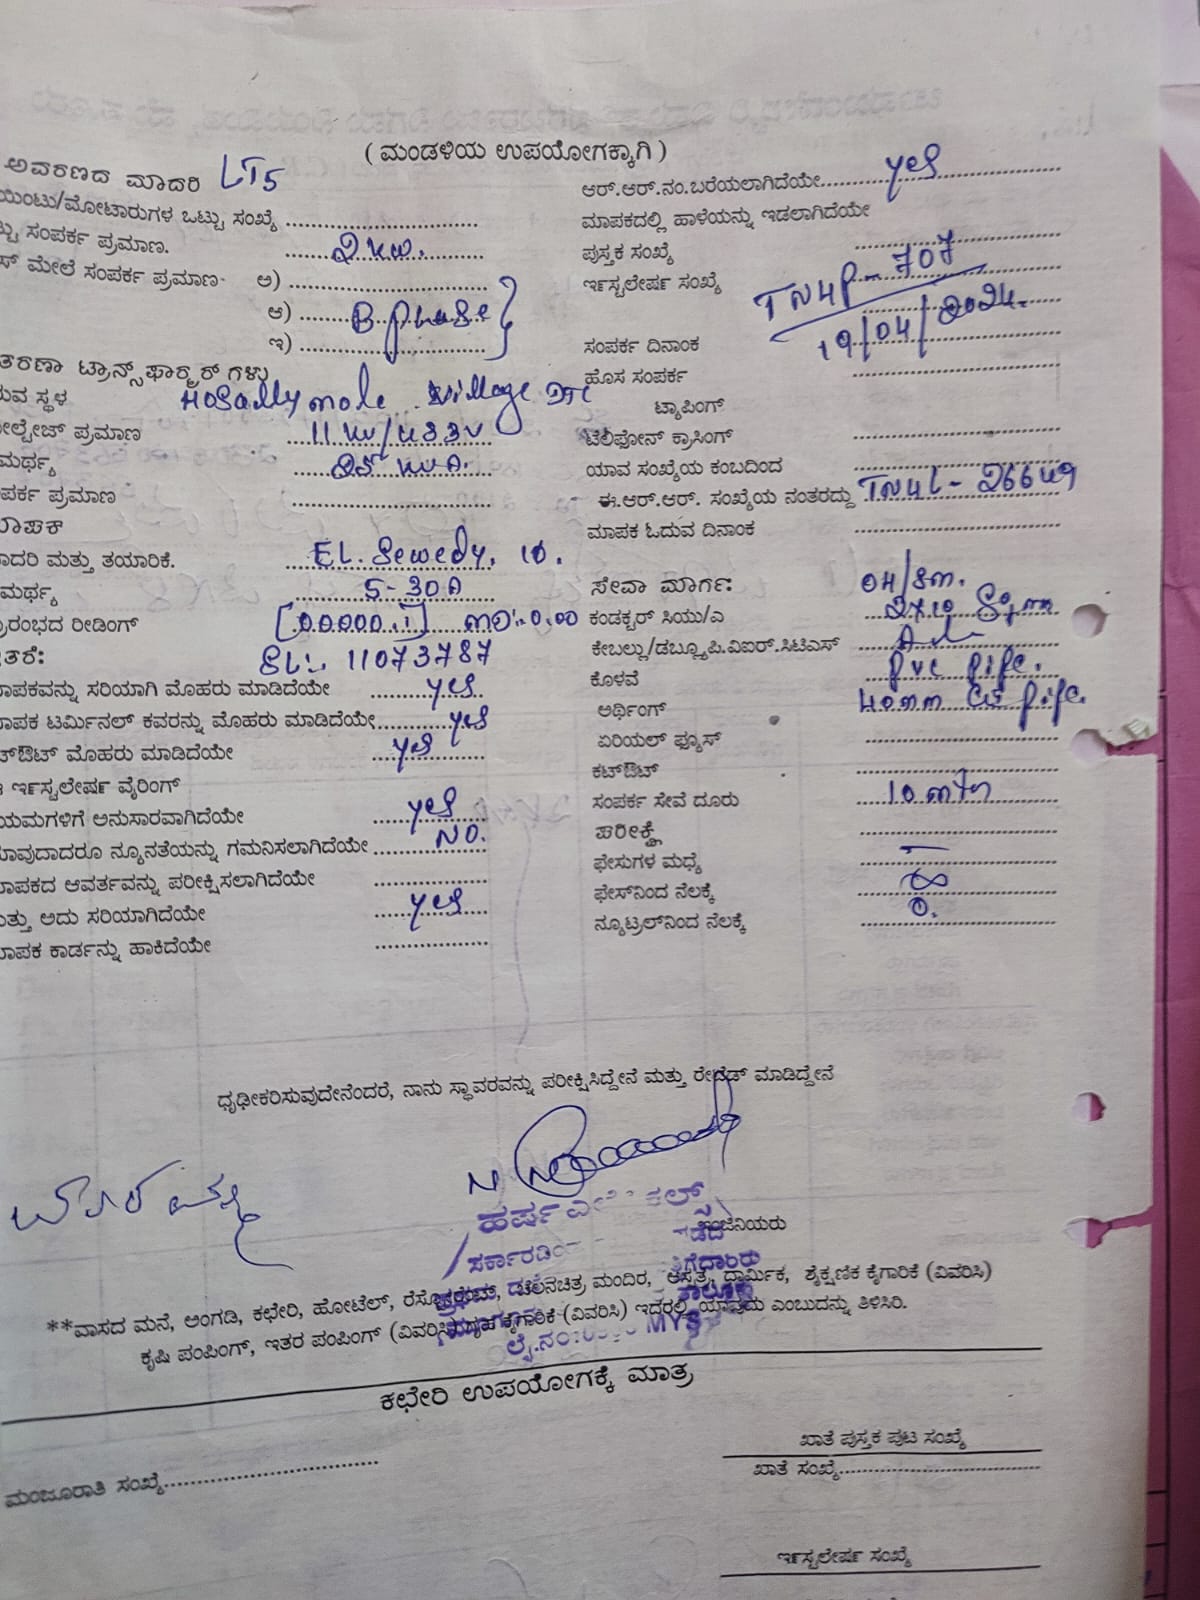 ( ಮಂಡಳಿಯ ಉಪಯೋಗಕ್ಕಾಗಿ )
ಅವರಣದ ಮಾದರಿ LT5
ಯಿಂಟು/ಮೋಟಾರುಗಳ ಒಟ್ಟು ಸಂಖ್ಯೆ
ಟ್ಟು ಸಂಪರ್ಕ ಪ್ರಮಾಣ. 2 KW.
ಸ್ ಮೇಲೆ ಸಂಪರ್ಕ ಪ್ರಮಾಣ ಅ)
ಆ) B phase
ಇ)
ತರಣಾ ಟ್ರಾನ್ಸ್‌ಫಾರ್ಮರ್‌ಗಳು
ರುವ ಸ್ಥಳ Hosallymole Village
ೋಲ್ಟೇಜ್ ಪ್ರಮಾಣ 11 KV/433V
ಮರ್ಥ್ಯ 25 KVA.
ಪರ್ಕ ಪ್ರಮಾಣ
ಮಾಪಕ
ಮಾದರಿ ಮತ್ತು ತಯಾರಿಕೆ. EL. Sewedy, 10.
ಮರ್ಥ್ಯ 5-30A
್ರಾರಂಭದ ರೀಡಿಂಗ್ [00000.1] MD:-0.00
ತರೆ: SL:. 11073787
ಮಾಪಕವನ್ನು ಸರಿಯಾಗಿ ಮೊಹರು ಮಾಡಿದೆಯೇ yes
ಮಾಪಕ ಟರ್ಮಿನಲ್ ಕವರನ್ನು ಮೊಹರು ಮಾಡಿದೆಯೇ yes
ಟ್‌ಔಟ್ ಮೊಹರು ಮಾಡಿದೆಯೇ yes
ಈ ಇನ್‌ಸ್ಟಲೇಷನ್ ವೈರಿಂಗ್
ಯಮಗಳಿಗೆ ಅನುಸಾರವಾಗಿದೆಯೇ yes
ಯಾವುದಾದರೂ ನ್ಯೂನತೆಯನ್ನು ಗಮನಿಸಲಾಗಿದೆಯೇ NO.
ಮಾಪಕದ ಆವರ್ತವನ್ನು ಪರೀಕ್ಷಿಸಲಾಗಿದೆಯೇ
ಮತ್ತು ಅದು ಸರಿಯಾಗಿದೆಯೇ yes
ಮಾಪಕ ಕಾರ್ಡನ್ನು ಹಾಕಿದೆಯೇ
ಆರ್.ಆರ್.ನಂ.ಬರೆಯಲಾಗಿದೆಯೇ yes
ಮಾಪಕದಲ್ಲಿ ಹಾಳೆಯನ್ನು ಇಡಲಾಗಿದೆಯೇ
ಪುಸ್ತಕ ಸಂಖ್ಯೆ
ಇನ್‌ಸ್ಟಲೇಷನ್ ಸಂಖ್ಯೆ TN4P-707
ಸಂಪರ್ಕ ದಿನಾಂಕ 19/04/2024.
ಹೊಸ ಸಂಪರ್ಕ
ಟ್ಯಾಪಿಂಗ್
ಟೆಲಿಫೋನ್ ಕ್ರಾಸಿಂಗ್
ಯಾವ ಸಂಖ್ಯೆಯ ಕಂಬದಿಂದ
ಈ.ಆರ್.ಆರ್. ಸಂಖ್ಯೆಯ ನಂತರದ್ದು TN4L-26649
ಮಾಪಕ ಓದುವ ದಿನಾಂಕ
ಸೇವಾ ಮಾರ್ಗ: 04/sm.
ಕಂಡಕ್ಟರ್ ಸಿಯು/ಎ 2X10 Sqmm
ಕೇಬಲ್ಲು/ಡಬ್ಲ್ಯೂ.ಪಿ.ವಿಐಆರ್.ಸಿಟಿಎಸ್
ಕೊಳವೆ PVC Pipe.
ಅರ್ಥಿಂಗ್ 40mm GI Pipe.
ಏರಿಯಲ್ ಫ್ಯೂಸ್
ಕಟ್‌ಔಟ್
ಸಂಪರ್ಕ ಸೇವೆ ದೂರು 10 mtr
ಪರೀಕ್ಷೆ
ಫೇಸುಗಳ ಮಧ್ಯೆ —
ಫೇಸ್‌ನಿಂದ ನೆಲಕ್ಕೆ ∞
ನ್ಯೂಟ್ರಲ್‌ನಿಂದ ನೆಲಕ್ಕೆ 0.
ಧೃಢೀಕರಿಸುವುದೇನೆಂದರೆ, ನಾನು ಸ್ಥಾವರವನ್ನು ಪರೀಕ್ಷಿಸಿದ್ದೇನೆ ಮತ್ತು ರೇಟೆಡ್ ಮಾಡಿದ್ದೇನೆ
ಹರ್ಷ
ಇಂಜಿನಿಯರು
**ವಾಸದ ಮನೆ, ಅಂಗಡಿ, ಕಛೇರಿ, ಹೋಟೆಲ್, ರೆಸ್ಟೋರೆಂಟ್, ಚಲನಚಿತ್ರ ಮಂದಿರ, ಆಸ್ಪತ್ರೆ, ಧಾರ್ಮಿಕ, ಶೈಕ್ಷಣಿಕ ಕೈಗಾರಿಕೆ (ವಿವರಿಸಿ)
ಕೃಷಿ ಪಂಪಿಂಗ್, ಇತರ ಪಂಪಿಂಗ್ (ವಿವರಿಸಿ) ಗೃಹ ಕೈಗಾರಿಕೆ (ವಿವರಿಸಿ) ಇದರಲ್ಲಿ ಯಾವುದು ಎಂಬುದನ್ನು ತಿಳಿಸಿರಿ.
ಕಛೇರಿ ಉಪಯೋಗಕ್ಕೆ ಮಾತ್ರ
ಖಾತೆ ಪುಸ್ತಕ ಪುಟ ಸಂಖ್ಯೆ
ಖಾತೆ ಸಂಖ್ಯೆ
ಮಂಜೂರಾತಿ ಸಂಖ್ಯೆ
ಇನ್‌ಸ್ಟಲೇಷನ್ ಸಂಖ್ಯೆ